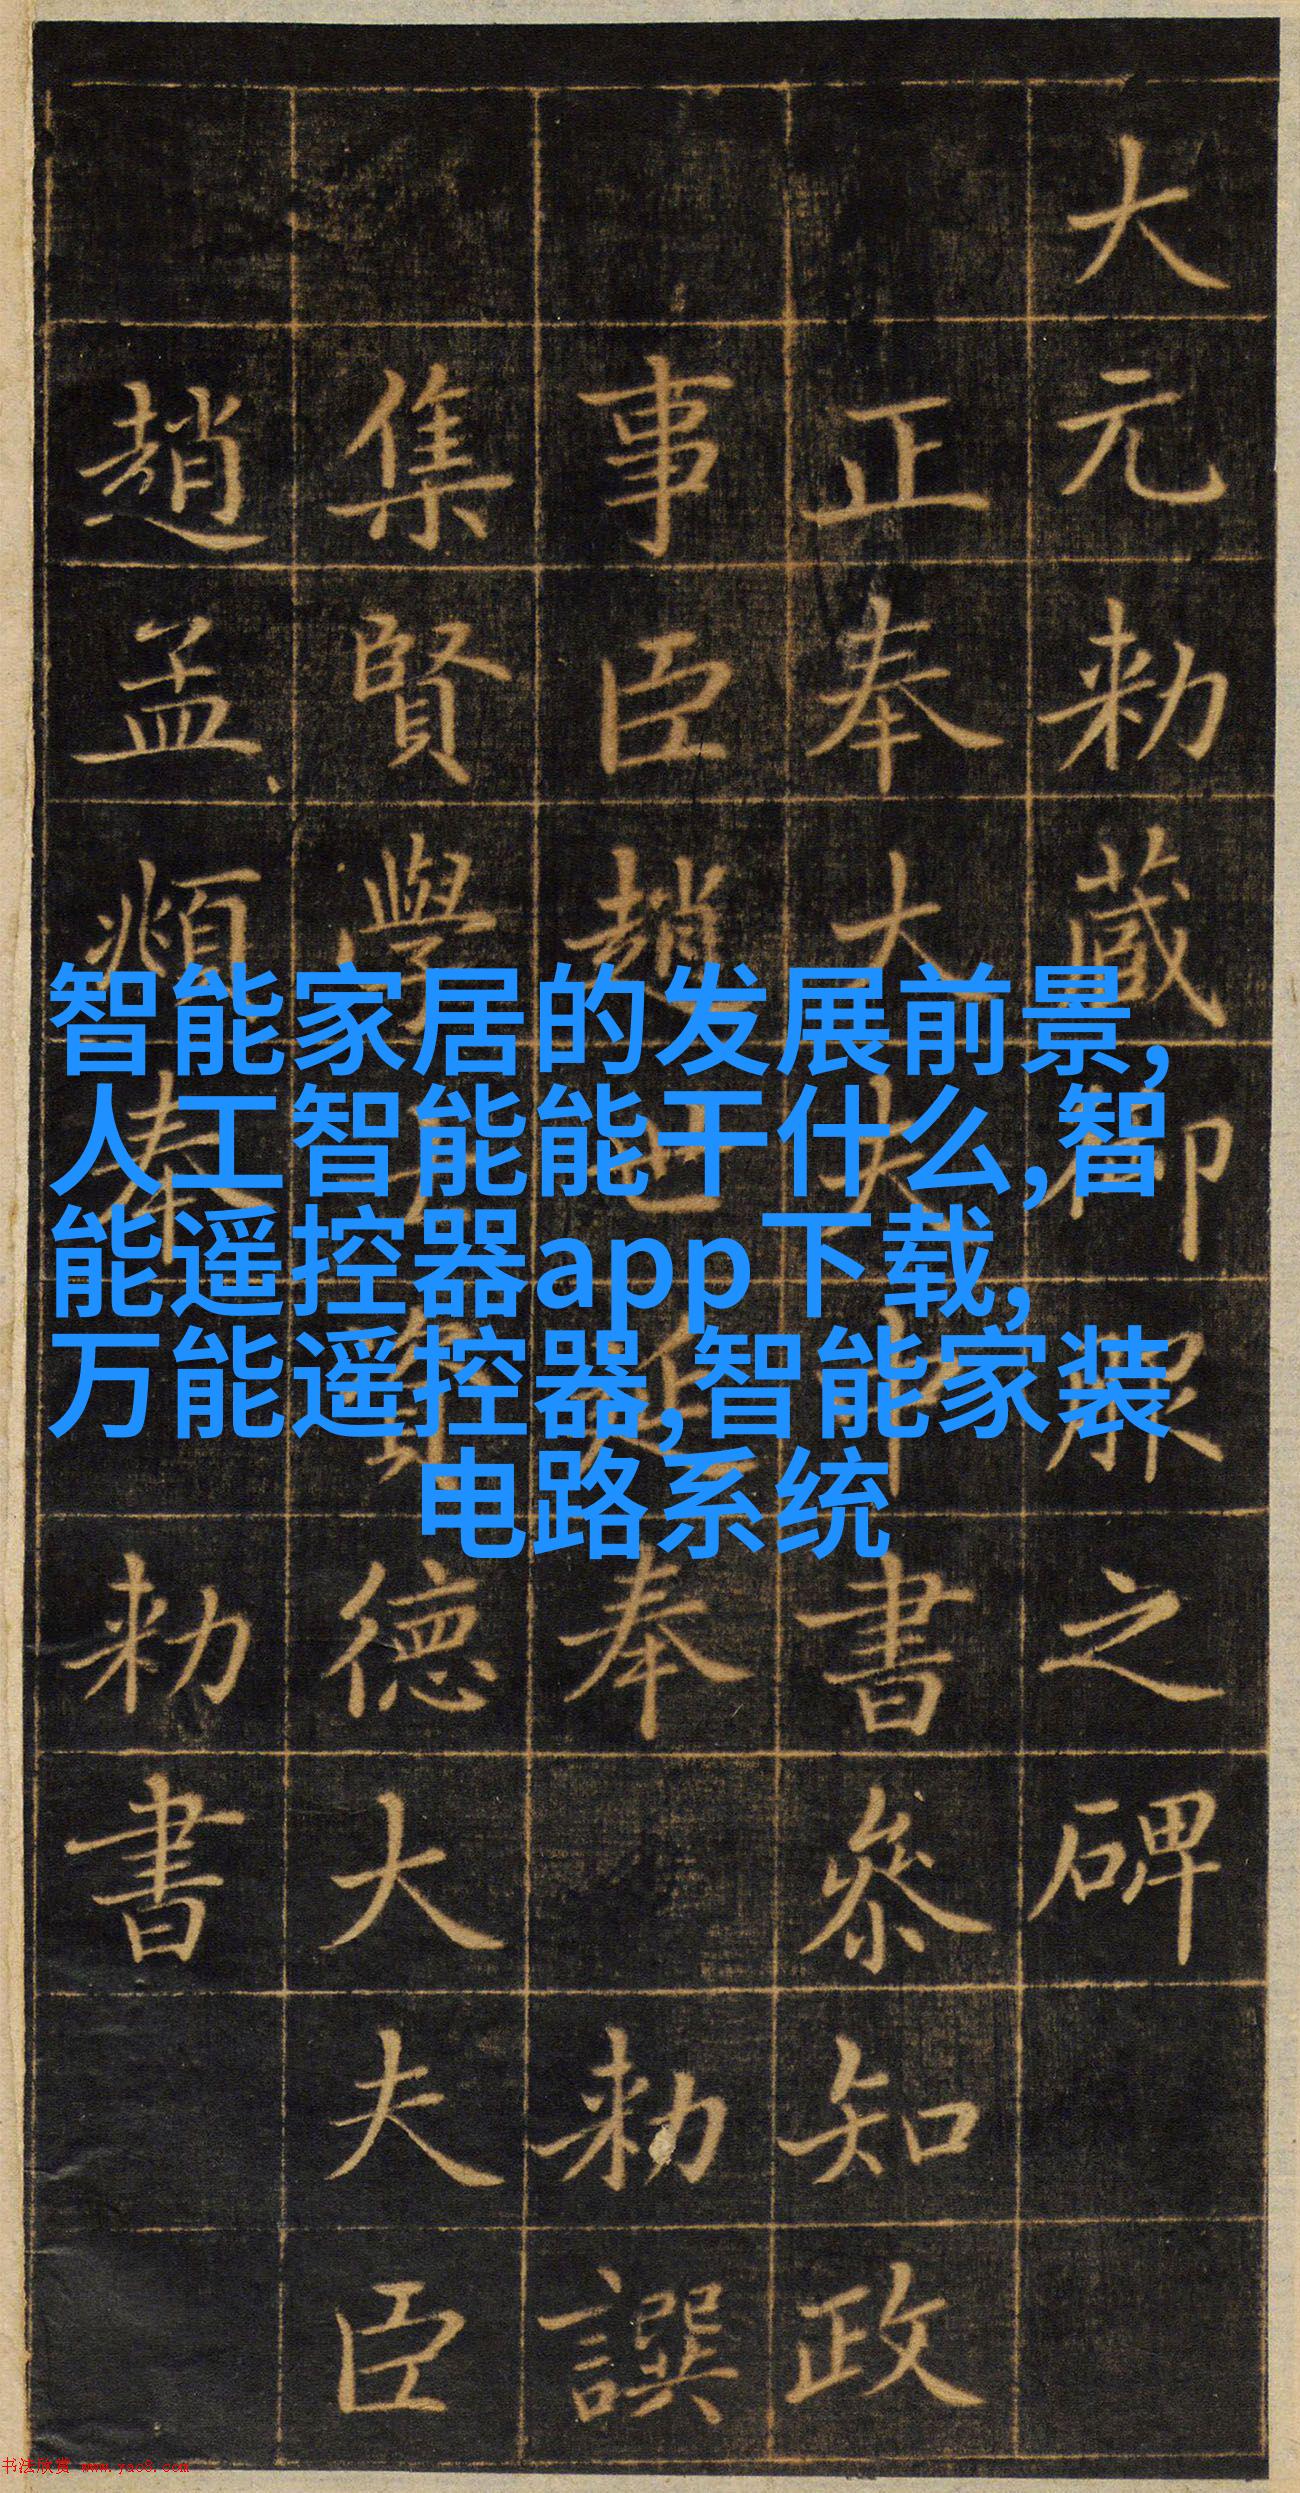 大元勑藏御服之碑
正奉大夫中書參知政
事臣趙世延奉勑譔
集賢學士資德大夫臣
趙孟頫奉勑書
智能家居的发展前景,
人工智能能干什么,智
能遥控器app下载,
万能遥控器,智能家装
电路系统
书法欣赏 www.yac8.com